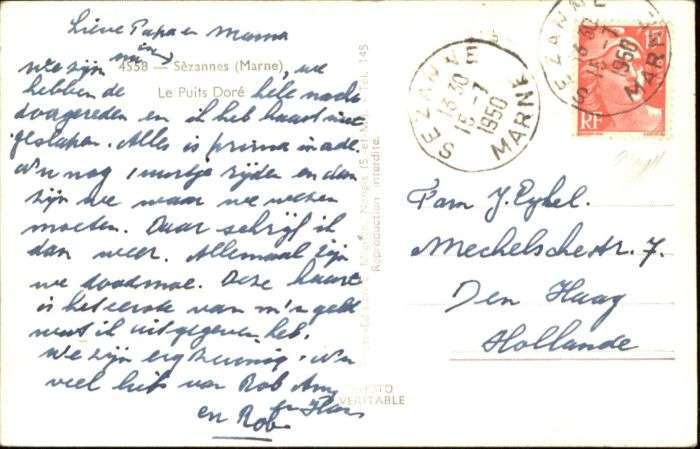 Lieve Papa en Mama
We zijn in , we
4558 - Sézannes (Marne)
hebben de hele nacht
Le Puits Doré
doorgereden en ik heb haast niet
geslapen. Alles is prima in orde.
N'u nog 1 uurtje rijden en dan
zijn we waar we wezen
moeten. Daar schrijf ik
dan weer. Allemaal zijn
we doodmoe. Deze kaart
is het eerste van m'n geld
wat ik uitgegeven heb.
We zijn erg zuinig. N'u
veel liefs van Rob Any
en Hans
en Rob
PHOTO
VERITABLE
Reproduction interdite.
Tél. 145
SEZANNE
13 30
15 - 7
1950
MARNE
SEZANNE
15 - 7
1950
MARNE
RF
Fam J. Eykel.
Mechelschestr. 7.
Den Haag
Hollande